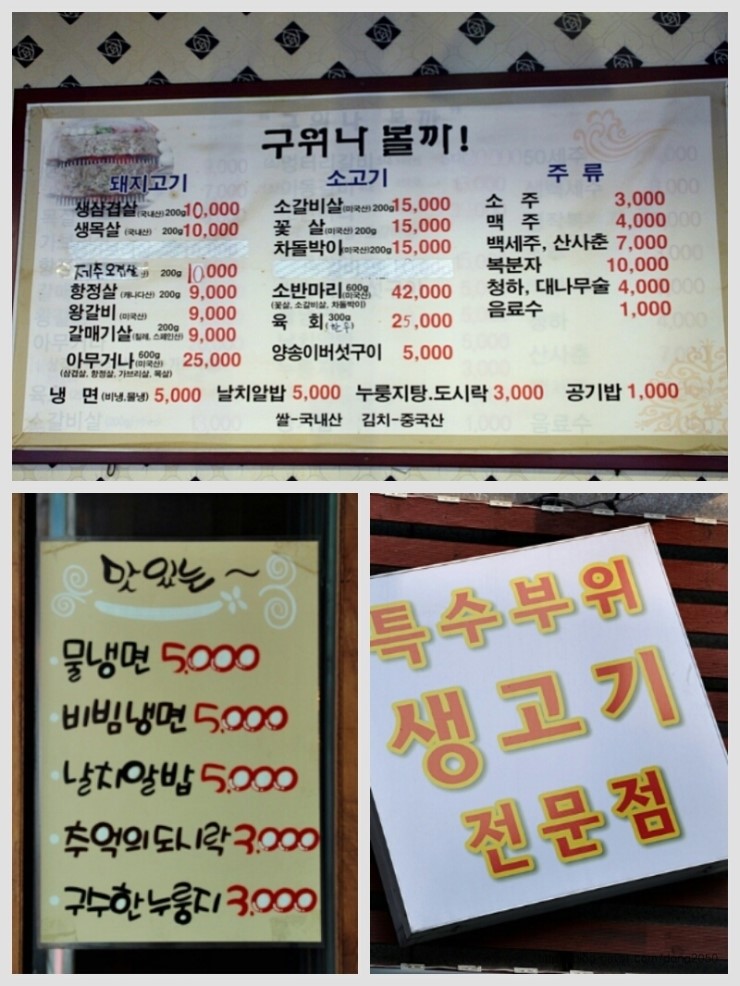 구워나 볼까!
돼지고기
생삼겹살 (국내산) 200g 10,000
생목살 (국내산) 200g 10,000
제주오겹살 200g 10,000
항정살 (캐나다산) 200g 9,000
왕갈비 (미국산) 9,000
갈매기살 200g (칠레, 스페인산) 9,000
아무거나 600g (미국산) 25,000
(삼겹살, 항정살, 가브리살, 목살)
소고기
소갈비살 (미국산) 200g 15,000
꽃 살 (미국산) 200g 15,000
차돌박이 (미국산) 200g 15,000
소반마리 600g (미국산) 42,000
(꽃살, 소갈비살, 차돌박이)
육 회 300g 25,000
양송이버섯구이 5,000
주 류
소 주 3,000
맥 주 4,000
백세주, 산사춘 7,000
복분자 10,000
청하, 대나무술 4,000
음료수 1,000
냉 면 (비냉,물냉) 5,000 날치알밥 5,000 누룽지탕.도시락 3,000 공기밥 1,000
쌀-국내산 김치-중국산
맛있는~
물냉면 5,000
비빔냉면 5,000
날치알밥 5,000
추억의도시락 3,000
구수한누룽지 3,000
특수부위
생고기
전문점